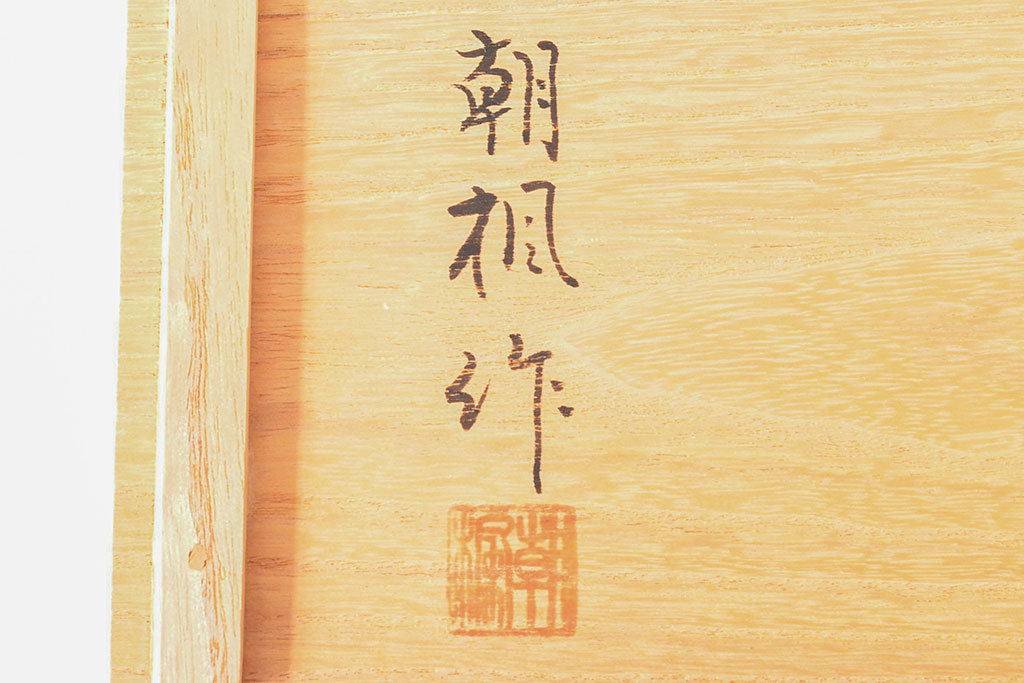 朝楓作